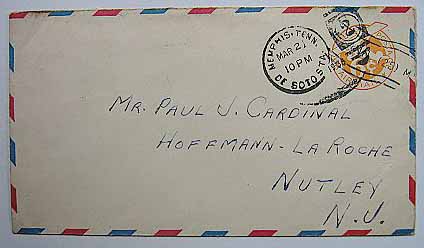 MEMPHIS, TENN.
MAR 21
10 PM
DE SOTO STA.
MR. PAUL J. CARDINAL
HOFFMANN-LA ROCHE
NUTLEY
N.J.